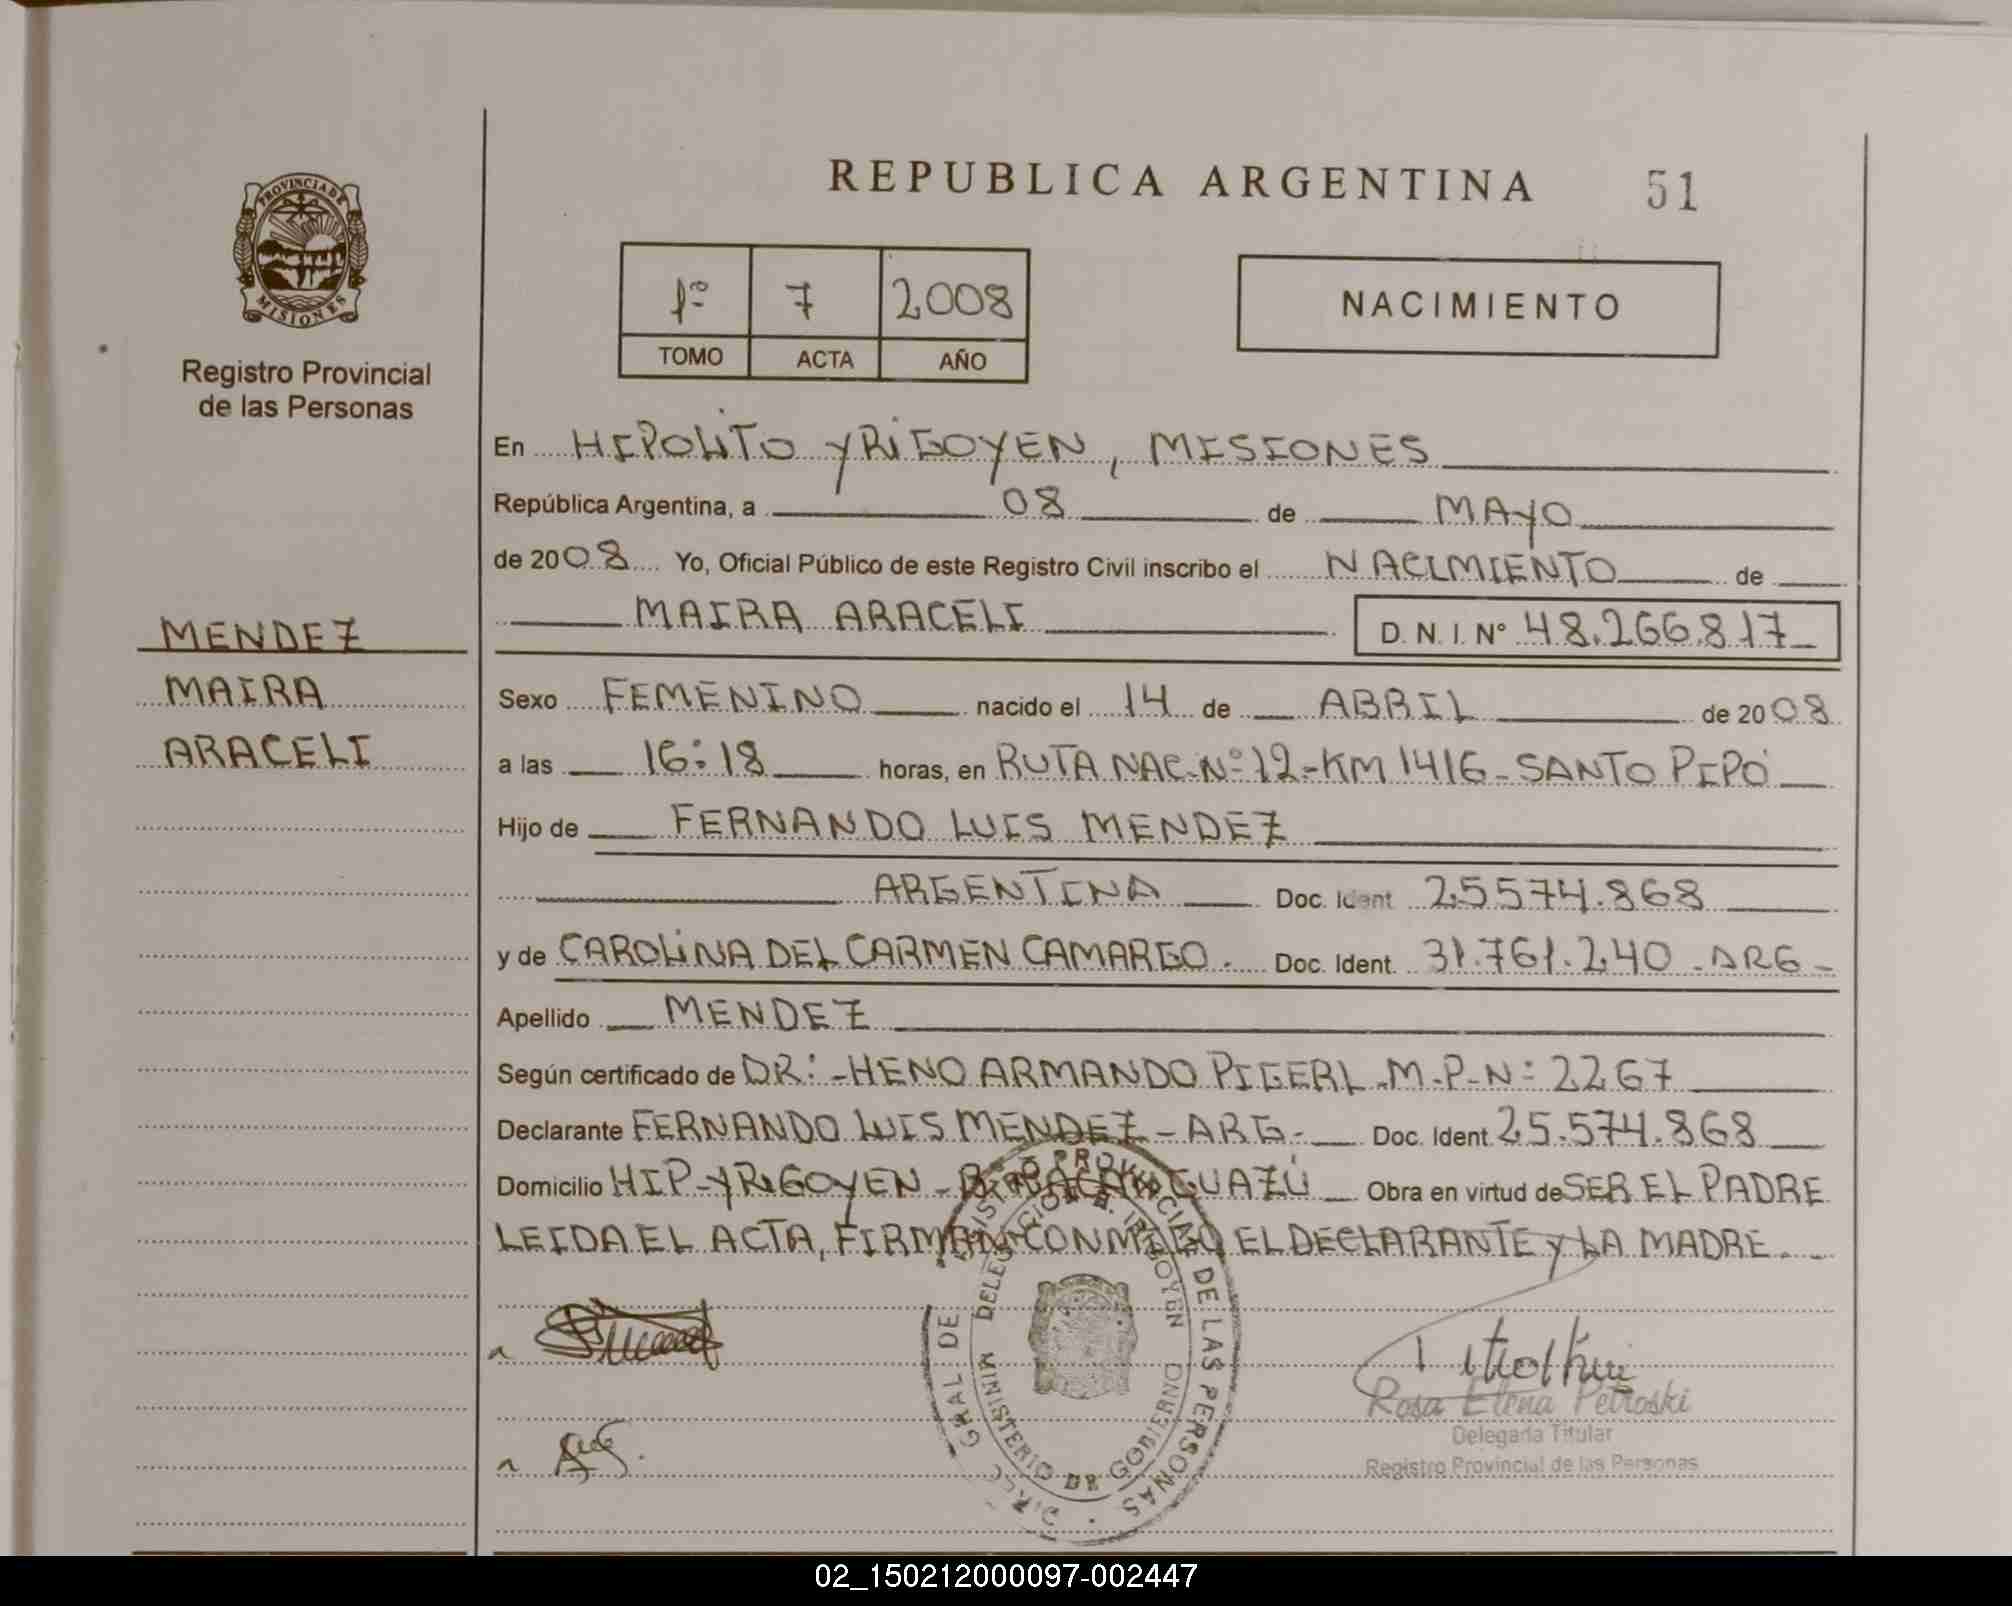 PROVINCIA DE
MISIONES
Registro Provincial
de las Personas
MENDEZ
MAIRA
ARACELI
REPUBLICA ARGENTINA 51
1º 7 2008
TOMO ACTA AÑO
NACIMIENTO
En HIPOLITO YRIGOYEN, MISIONES
República Argentina, a 08 de MAYO
de 2008 Yo, Oficial Público de este Registro Civil inscribo el NACIMIENTO de
MAIRA ARACELI D. N. I. Nº 48.266.817
Sexo FEMENINO nacido el 14 de ABRIL de 2008
a las 16:18 horas, en RUTA NAC. Nº 12 - KM 1416 - SANTO PIPÓ
Hijo de FERNANDO LUIS MENDEZ
ARGENTINA Doc. Ident 25574.868
y de CAROLINA DEL CARMEN CAMARGO. Doc. Ident. 31.761.240 - ARG -
Apellido MENDEZ
Según certificado de DR: - HENO ARMANDO PIGERL. M.P.Nº: 2267
Declarante FERNANDO LUIS MENDEZ - ARG - Doc. Ident 25.574.868
Domicilio HIP - YRIGOYEN - GUAZÚ Obra en virtud de SER EL PADRE
LEIDA EL ACTA, FIRMAN CONMIGO EL DECLARANTE Y LA MADRE.
REGISTRO PROVINCIAL DE LAS PERSONAS
DELEGACION H. IRIGOYEN
MINISTERIO DE GOBIERNO
DIREC. GRAL DE
Rosa Elena Petroski
Delegada Titular
Registro Provincial de las Personas
02_150212000097-002447